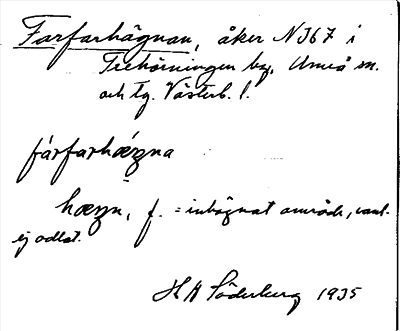 Farfarhägnan, åker N 367 i
Trehörningen by, Umeå sn.
och tg. Västerb. l.
fárfarhǽgna
hægn, f. = inhägnat område, vanl.
ej odlat.
H A Söderberg 1935